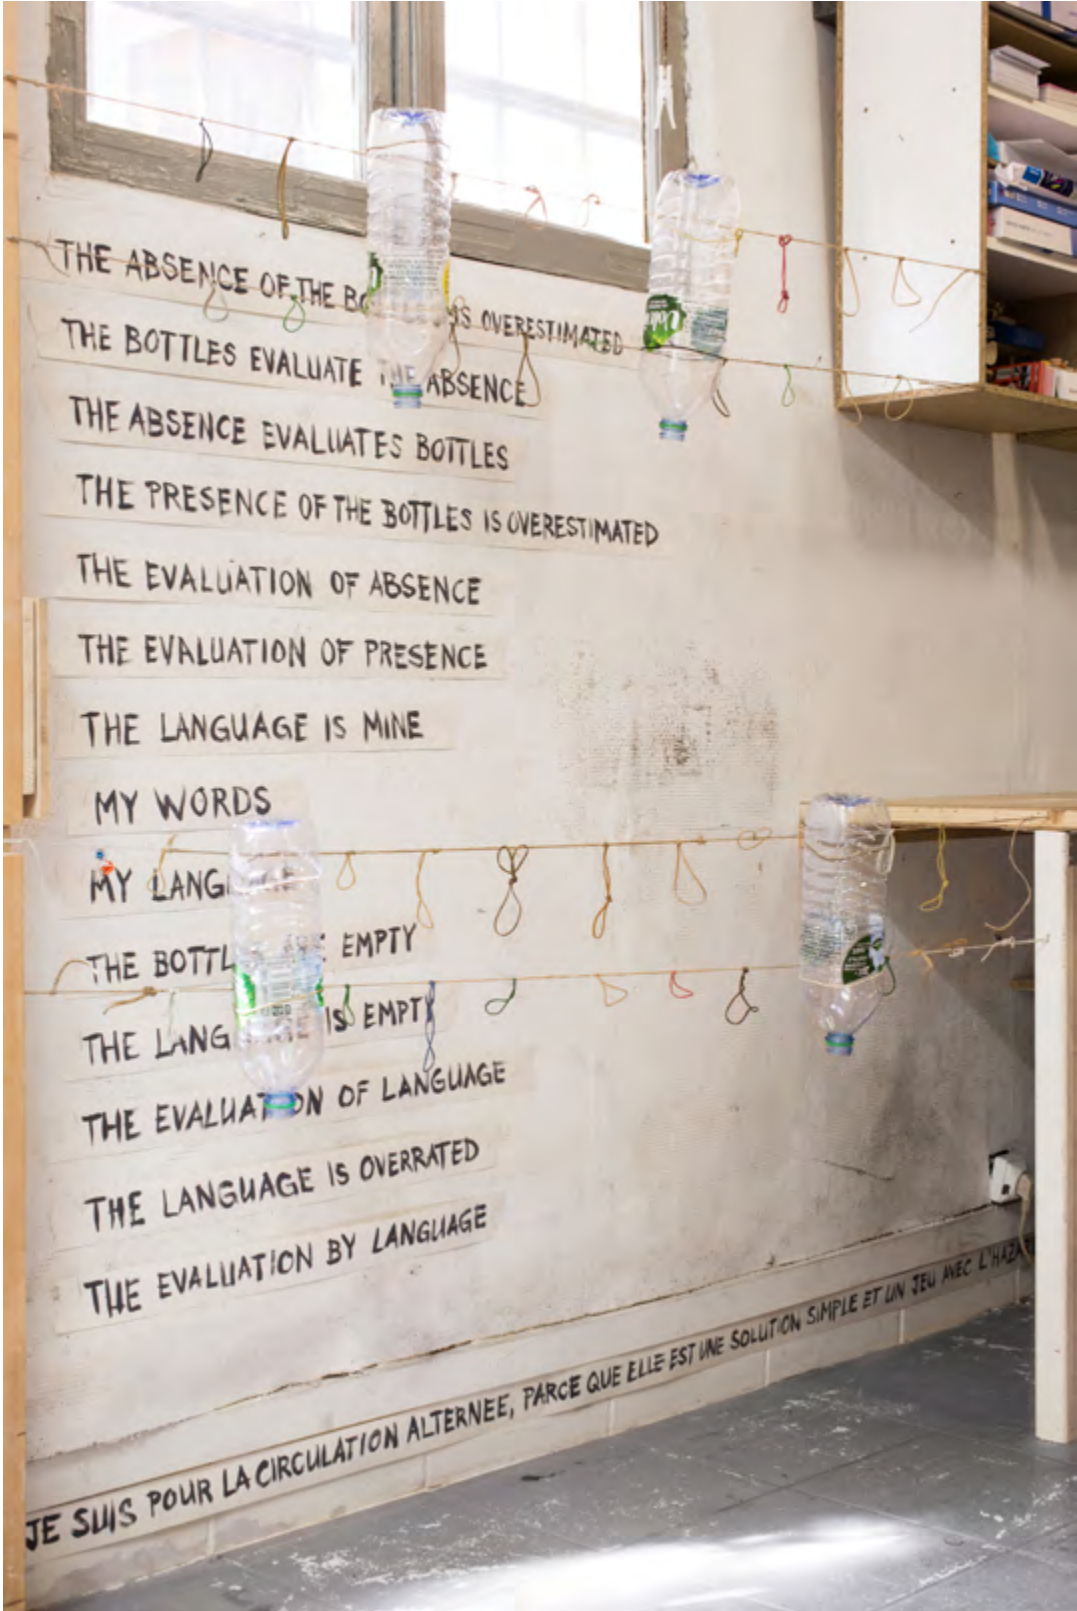 THE ABSENCE OF THE BO IS OVERESTIMATED
THE BOTTLES EVALUATE THE ABSENCE
THE ABSENCE EVALUATES BOTTLES
THE PRESENCE OF THE BOTTLES IS OVERESTIMATED
THE EVALUATION OF ABSENCE
THE EVALUATION OF PRESENCE
THE LANGUAGE IS MINE
MY WORDS
MY LANGUAGE
THE BOTTL EMPTY
THE LANGUAGE IS EMPTY
THE EVALUATION OF LANGUAGE
THE LANGUAGE IS OVERRATED
THE EVALUATION BY LANGUAGE
JE SUIS POUR LA CIRCULATION ALTERNEE, PARCE QUE ELLE EST UNE SOLUTION SIMPLE ET UN JEU AVEC L'HAZA